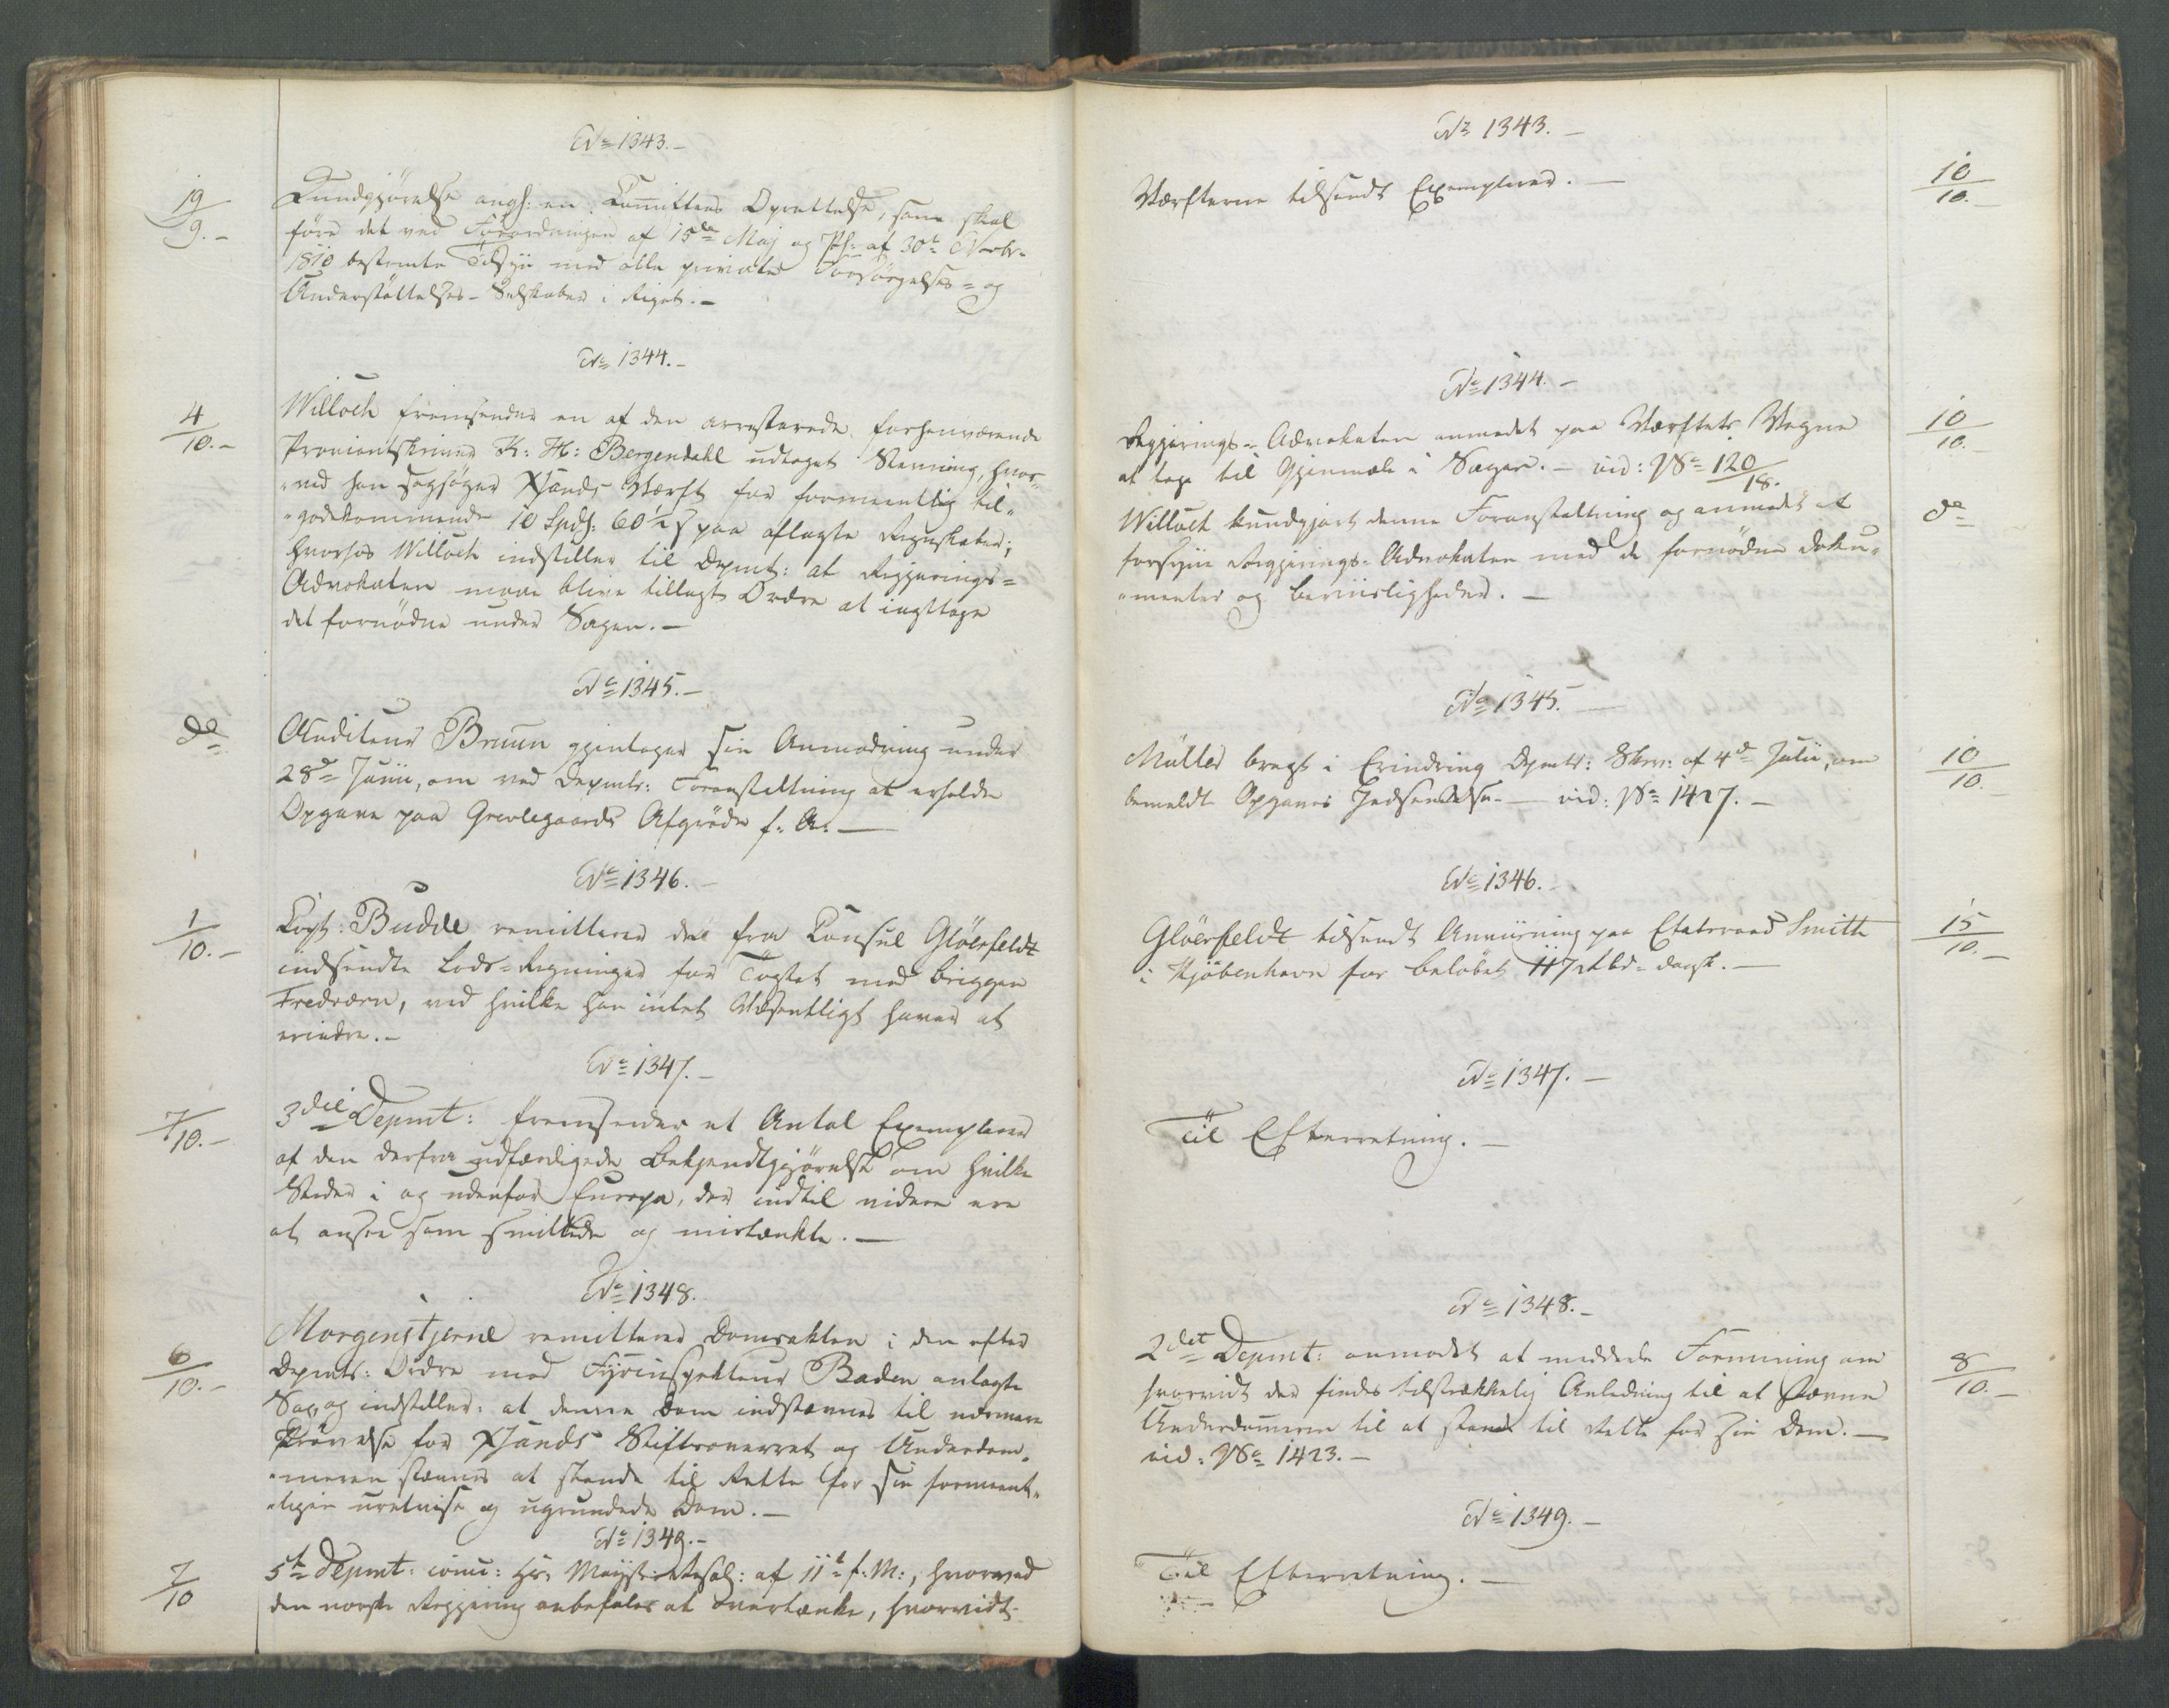 No 1343.-
19/9.-
Kundgjørelse angl: en Committees Oprettelse, som skal
føre det ved Forordningen af 15de Maj og Pl: af 30te Novbr.
1810 bestemte Tilsyn med alle private Forsørgelses= og
Understøttelses-Selskaber i Riget.-
No 1344.-
4/10.-
Willoch fremsender en af den arresterede forhenværende
Proviantskriver K: H: Bergendahl udtaget Stevning, hvor-
"ved han sagsøger Xsands Værft for formeentlig til-
"godekommende 10 Spd: 60½ s paa aflagte Regnskaber;
hvorhos Willoch indstiller til Depmt: at Regjerings=
Advokaten maae blive tillagt Ordre at iagttage
det fornødne under Sagen.-
No 1345.-
do
Auditeur Bruun gjentager sin Anmodning under
28de Junii, om ved Depmts: Foranstaltning at erholde
Opgave paa Grevlegaards Afgrøde f: A: —
No 1346.-
1/10.-
Capt: Budde remitterer de fra Consul Gløerfeldt
indsendte Lods=Regninger for Togtet med Briggen
Fredværn, ved hvilke han intet Væsentligt haver at
erindre.-
No 1347.-
7/10.-
3die Depmt: fremsender et Antal Exemplarer
af den derfra udfærdigede Bekjendtgjørelse om hvilke
Steder i og udenfor Europa, der indtil videre ere
at ansee som smittede og mistænkte.—
No 1348.
6/10.-
Morgenstjerne remitterer Domsakten i den efter
Depmts: Ordre mod Fyrinspekteur Baden anlagte
Sag, og indstiller: at denne Dom indstævnes til nærmere
Prøvelse for Xsands Stiftsoverret og Underdom-
"meren stævnes at stande til Rette for sin forment-
"ligen uretvise og ugrundede Dom.—
No 1349.-
7/10
5te Depmt: comu: Hs: Majst: Resol: af 11te f: M:, hvorved
den norske Regjering anbefales at overtænke, hvorvidt
No 1343.-
Værfterne tilsendt Exemplarer.—
10/10.-
No 1344.-
Regjerings-Advokaten anmodet paa Værftets Vegne
at tage til Gjenmæle i Sagen.- vid: No 120/18.
10/10.
Willoch kundgjort denne Foranstaltning og anmodet at
forsyne Regjerings-Advokaten med de fornødne Doku-
"menter og Beviisligheder.—
do
No 1345.-
Müller bragt i Erindring Depmts: Skriv: af 4de Julii, om
bemeldte Opgaves Indsendelse.— vid: No 1427.—
10/10.
No 1346.
Gløerfeldt tilsendt Anviisning paa Etatsraad Smith
i Kjøbenhavn for Beløbet 117 Rbd. dansk.—
15/10.-
No 1347.-
Til Efterretning.—
No 1348.-
2det Depmt: anmodet at meddele Formening om
hvorvidt der findes tilstrækkelig Anledning til at stævne
Underdommeren til at stande til Rette for sin Dom.—
vid: No 1423.—
8/10.-
No 1349.-
Til Efterretning.—